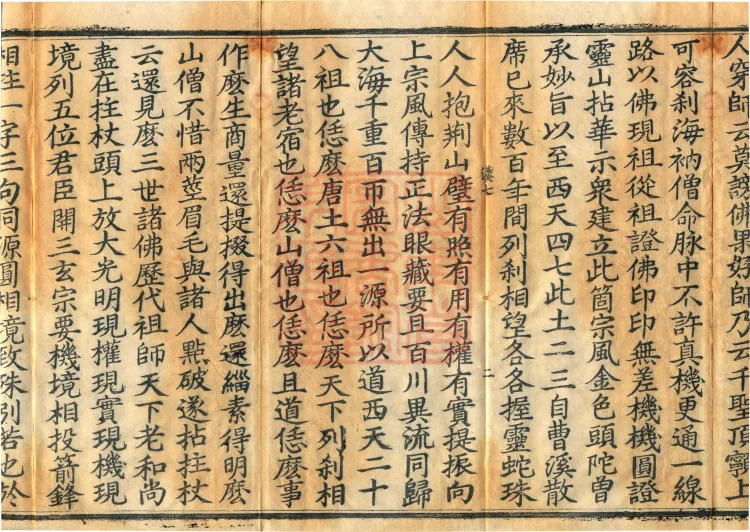 人窮師云莫謗佛果好師乃云千聖頂𩕳上
可容刹海衲僧命脉中不許真機更通一線
路以佛現祖從祖證佛印印無差機機圓證
靈山拈華示衆建立此箇宗風金色頭陀曾
承妙旨以至西天四七此土二三自曹溪散
席已來數百年間列刹相望各各握靈蛇珠
二
人人抱荆山璧有照有用有權有實提振向
上宗風傳持正法眼藏要且百川異流同歸
大海千重百帀無出一源所以道西天二十
八祖也恁麽唐土六祖也恁麽天下列刹相
望諸老宿也恁麽山僧也恁麽且道恁麽事
作麽生商量還提掇得出麽還緇素得明麽
山僧不惜兩莖眉毛與諸人點破遂拈拄杖
云還見麽三世諸佛歷代祖師天下老和尚
盡在拄杖頭上放大光明現權現實現機現
境列五位君臣開三玄宗要機境相投箭鋒
相拄一字三句同源圓相竟致殊别若也於